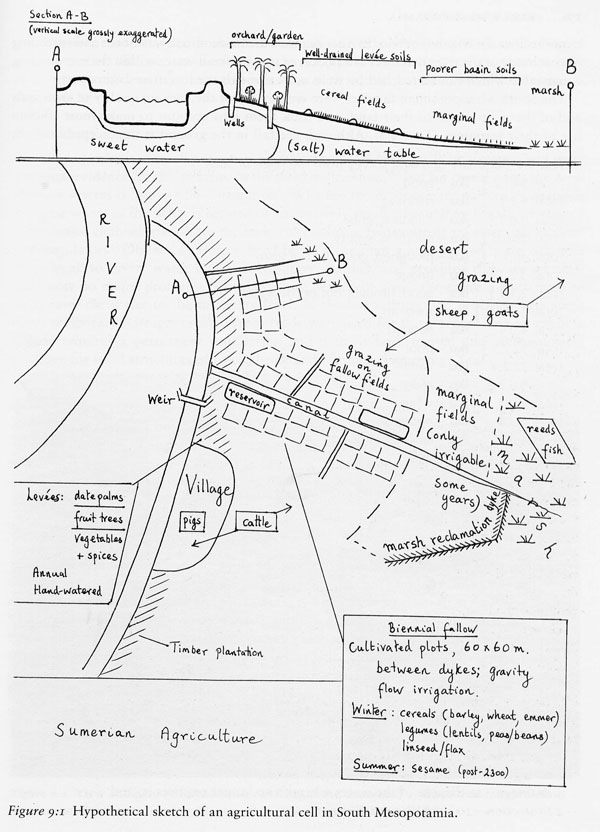 Section A-B
(vertical scale grossly exaggerated)
A
orchard/garden
well-drained levée soils
poorer basin soils
B
marsh
cereal fields
marginal fields
Wells
sweet water
(salt) water table
RIVER
A
B
desert
grazing
sheep, goats
grazing
on
fallow fields
canal
reservoir
Weir
marginal
fields
(only
irrigable
some
years)
marsh
reeds
fish
marsh reclamation dyke
Village
pigs
cattle
Levées: date palms
fruit trees
vegetables
+ spices
Annual
Hand-watered
Timber plantation
Biennial fallow
Cultivated plots, 60 x 60 m.
between dykes; gravity
flow irrigation.
Winter: cereals (barley, wheat, emmer)
legumes (lentils, peas/beans)
linseed/flax
Summer: sesame (post-2300)
Sumerian Agriculture
Figure 9:1 Hypothetical sketch of an agricultural cell in South Mesopotamia.